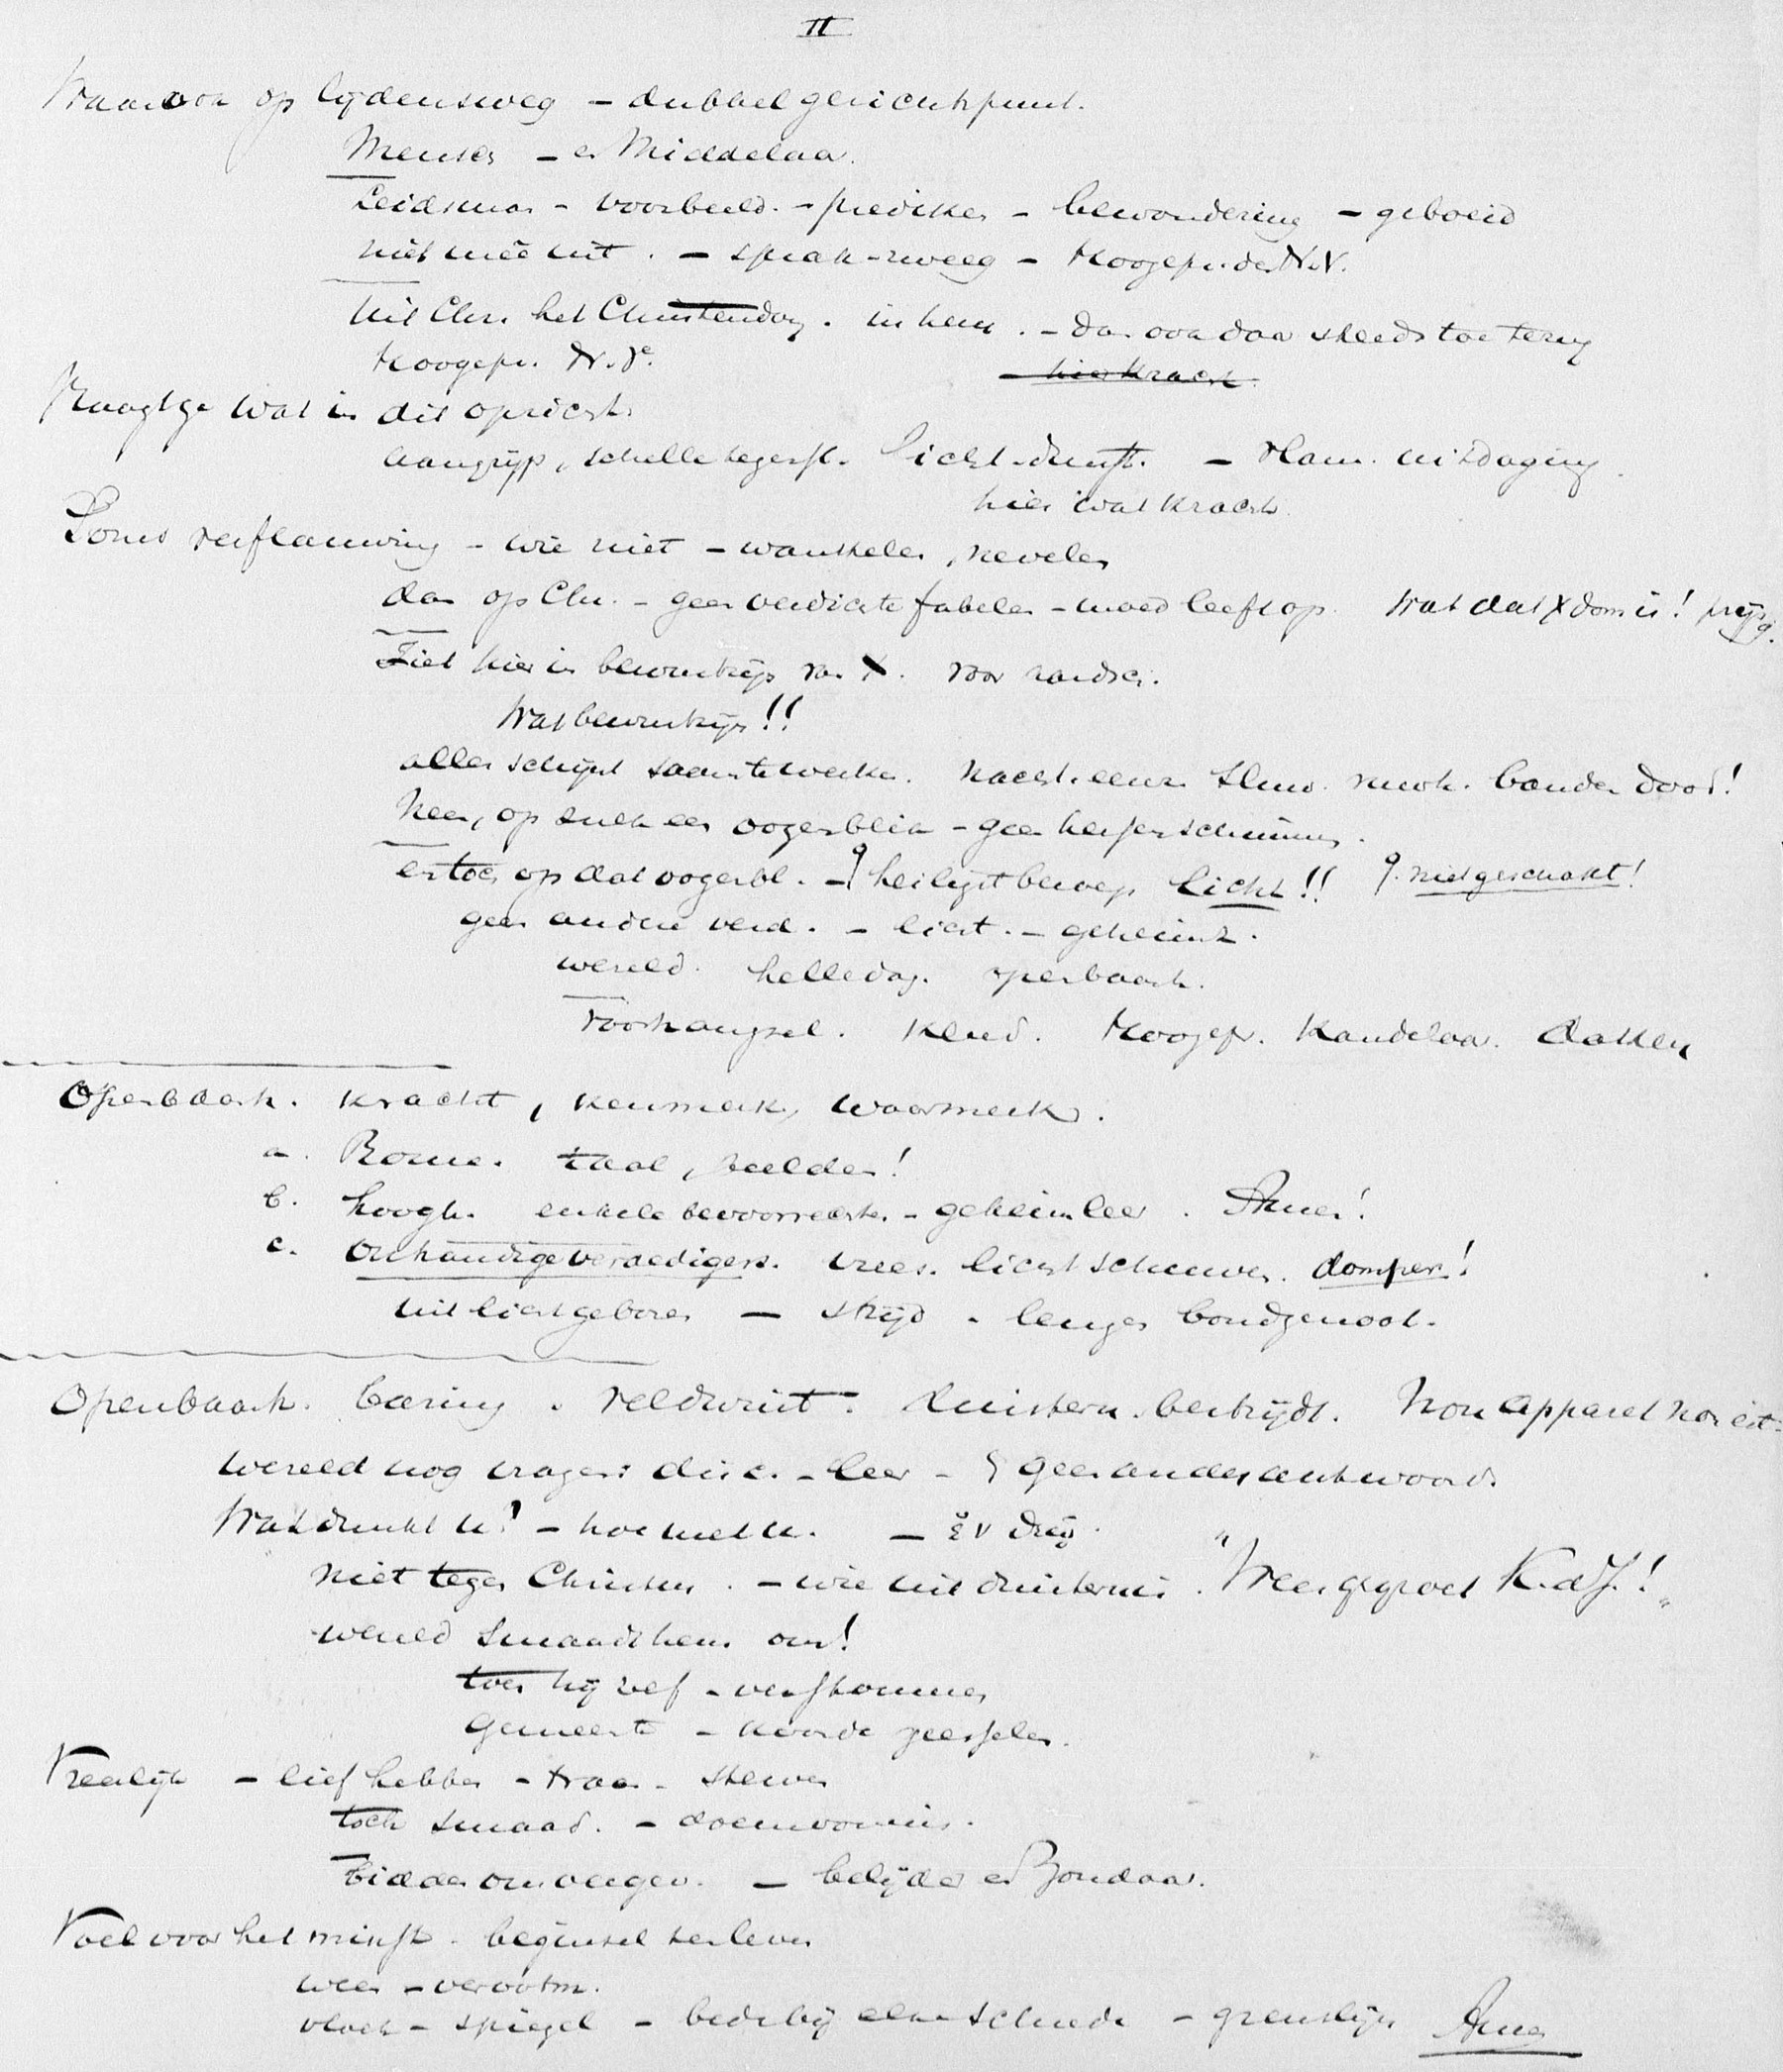 II
Waarook op lijdensweg - dubbel gezichtspunt.
Mensch - en Middelaar.
Leidsman - voorbeeld - prediker - bewondering - geboeid
niet mee uit. - sprak - zweeg - Hoogepr. des N.V.
Uit Chr. het Christendom. in hem. - Dan ook daar steeds toe terug
Hoogepr. N. V.
- hier kracht.
Vraagt ge wat in dit opzicht
aangrijp, schelle tegenst. licht - duist. - vlam. uitdaging.
hier wat kracht
Soms verflauwing - wie niet - wankelen, nevelen
dan op Chr. - geen verdichte fabelen - moed leeft op. Wat dat Xdom is!
Ziet hier in bewustzijn van X. voor
Wat bewustzijn!!
alles schijnt saam te werken. nacht. eenz. banden dood!
Neen, op zulk een oogenblik - geen hersenschimmen.
en toch op dat oogenbl. - heiligst beroep licht!! niet geschokt!
geen andere verd. - licht. - geheimz.
wereld. helle dag. openbaarh.
Voorhangsel. Kleed. Hoogepr. Kandelaar. daken
Openbaarh. kracht, kenmerk, waarmerk.
a. Rome. taal, beelden!
b. hoogh. enkele bevoorrechten - geheimleer. Amen!
c. Onhandige verdedigers. vrees. lichtschuwen. dompers!
uit licht geboren - strijd - leugen bondgenoot.
Openbaarh. bazuin. veld wint. duistern. bestrijdt. Non apparet non est.
wereld nog vragen: disc. - leer - geen ander antwoord.
Wat dunkt u? - hoe met u.
niet tegen Christus. - wie uit duisternis. "Wees gegroet K.d.J.!"
wereld smaadt hem om!
toen hij zelf - verstommen
Gemeente - koorde geeselen.
Vreeselijk - lief hebben - traan - sterven
toch smaad. - doemvonnis.
bidden - belijder en Zondaar.
Voel voor het minst. beginsel ten leven
weer - verootm.
vloek - spiegel - bede bij elk scheede - Amen